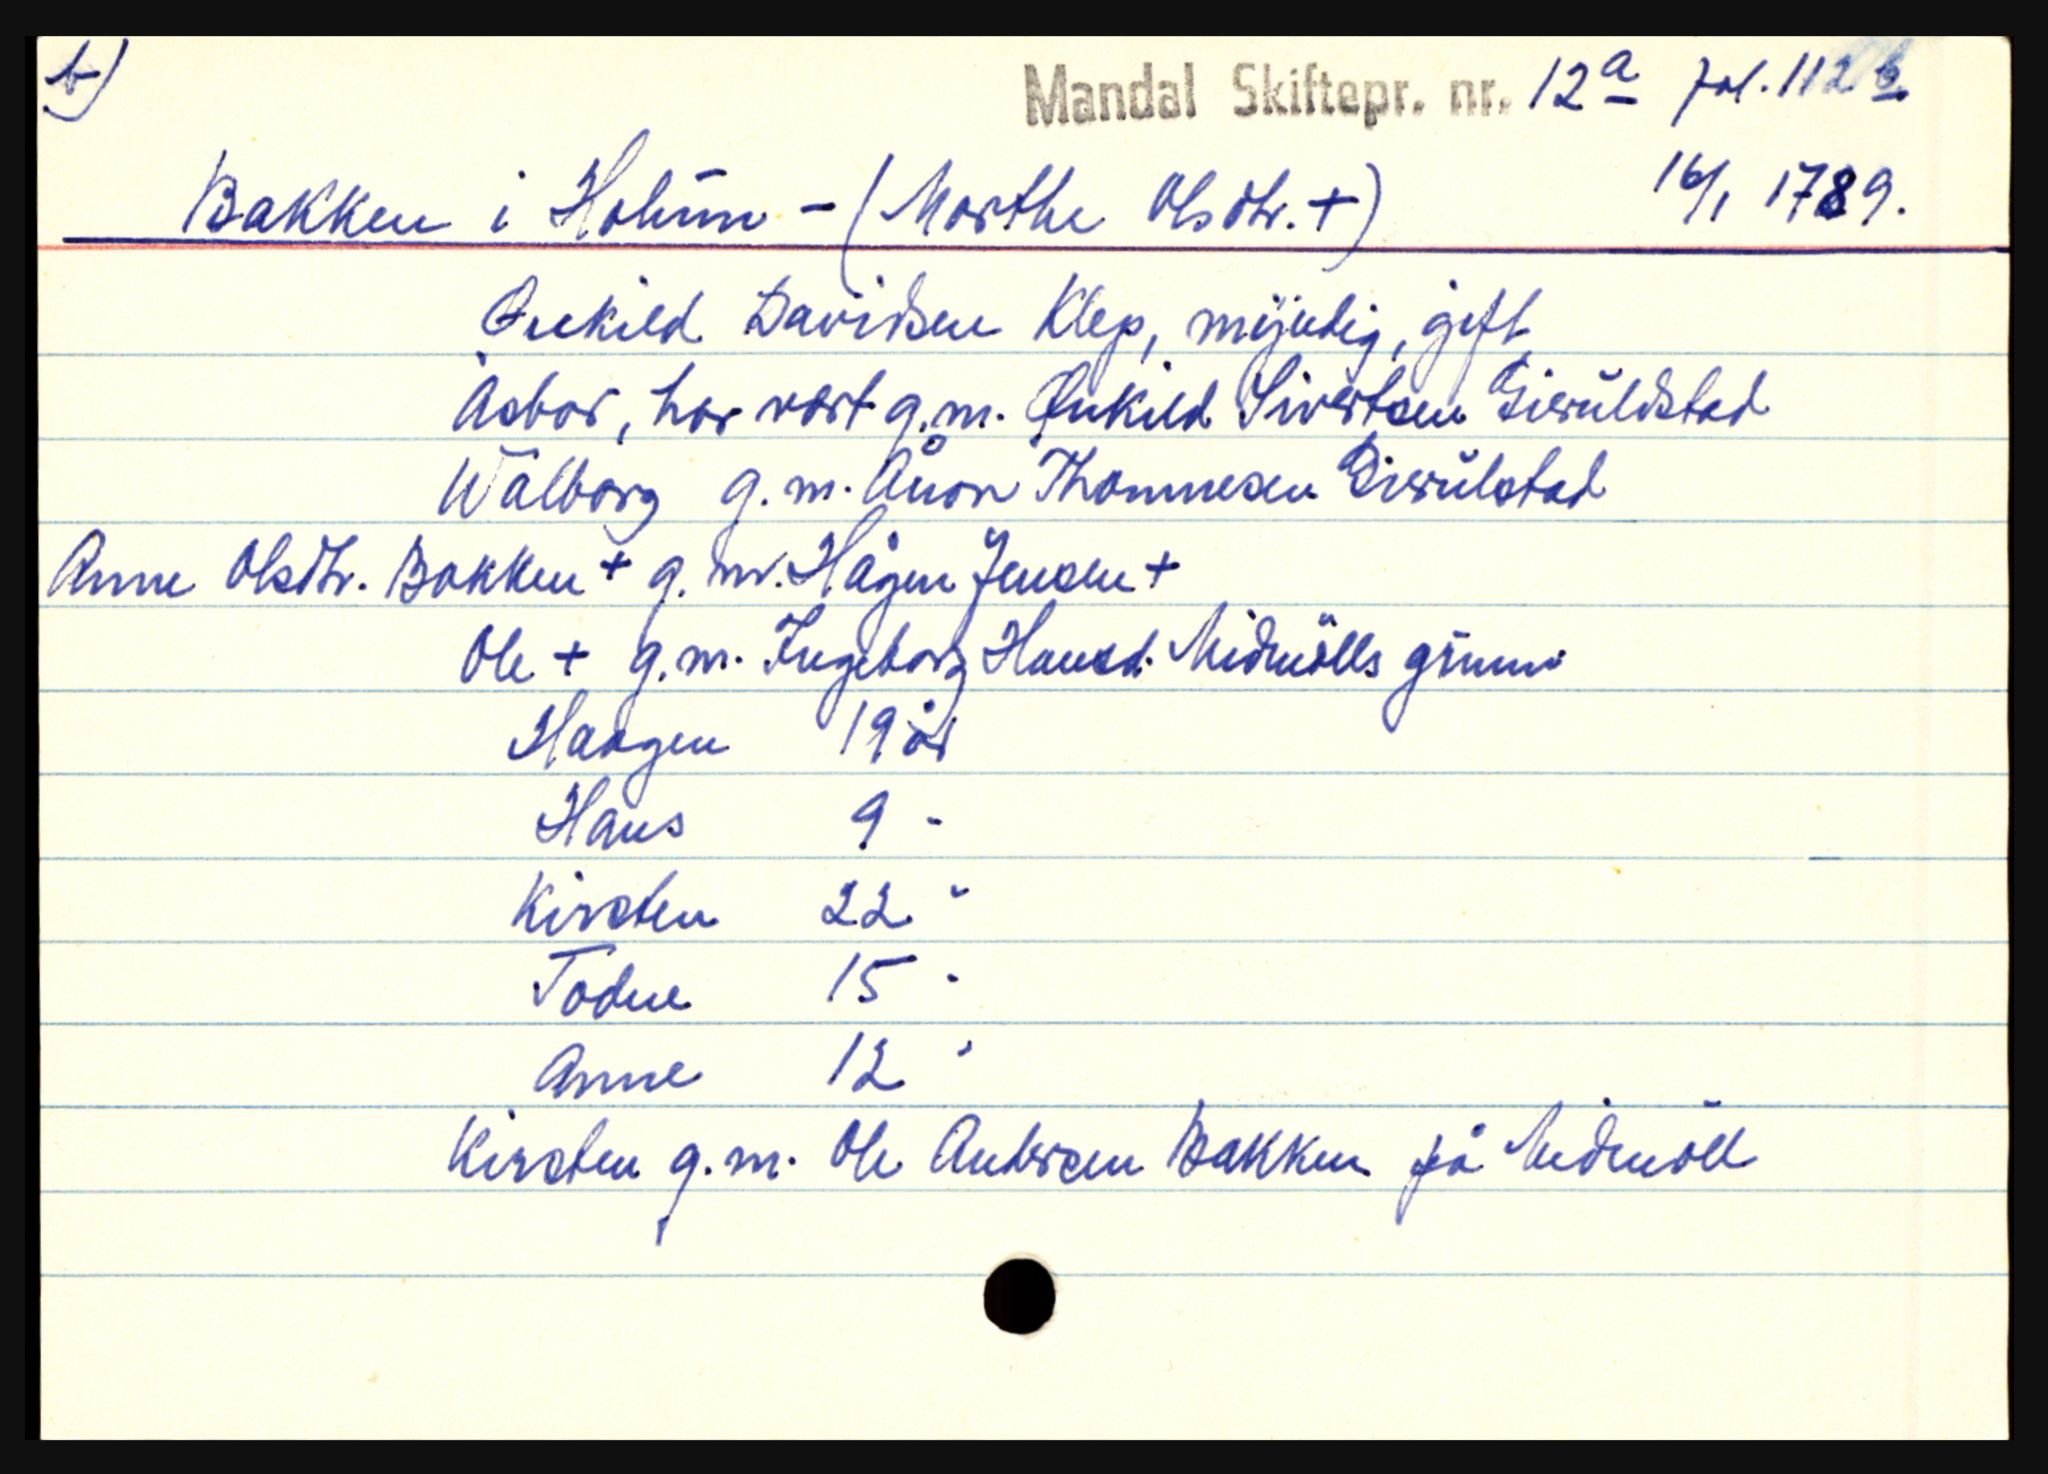 b)
Mandal Skiftepr. nr. 12a fol. 112b
Bakken i Holum - (Marthe Olsdtr. +) 16/1 1789.
Onkild Davidsen Klep, myndig, gift
Åsbor, har vært g.m. Onkild Sivertsen Gieruldstad
Walborg g.m. Ånon Thommesen Gierulstad
Anne Olsdtr. Bakken + g.m. Hågen Jensen +
Ole + g.m. Ingeborg Hansd. Midmölls grunn
Haagen 19 år
Hans 9 -
Kirsten 22 -
Todne 15 -
Anne 12 -
Kirsten g.m. Ole Andersen Bakken på Midmöll